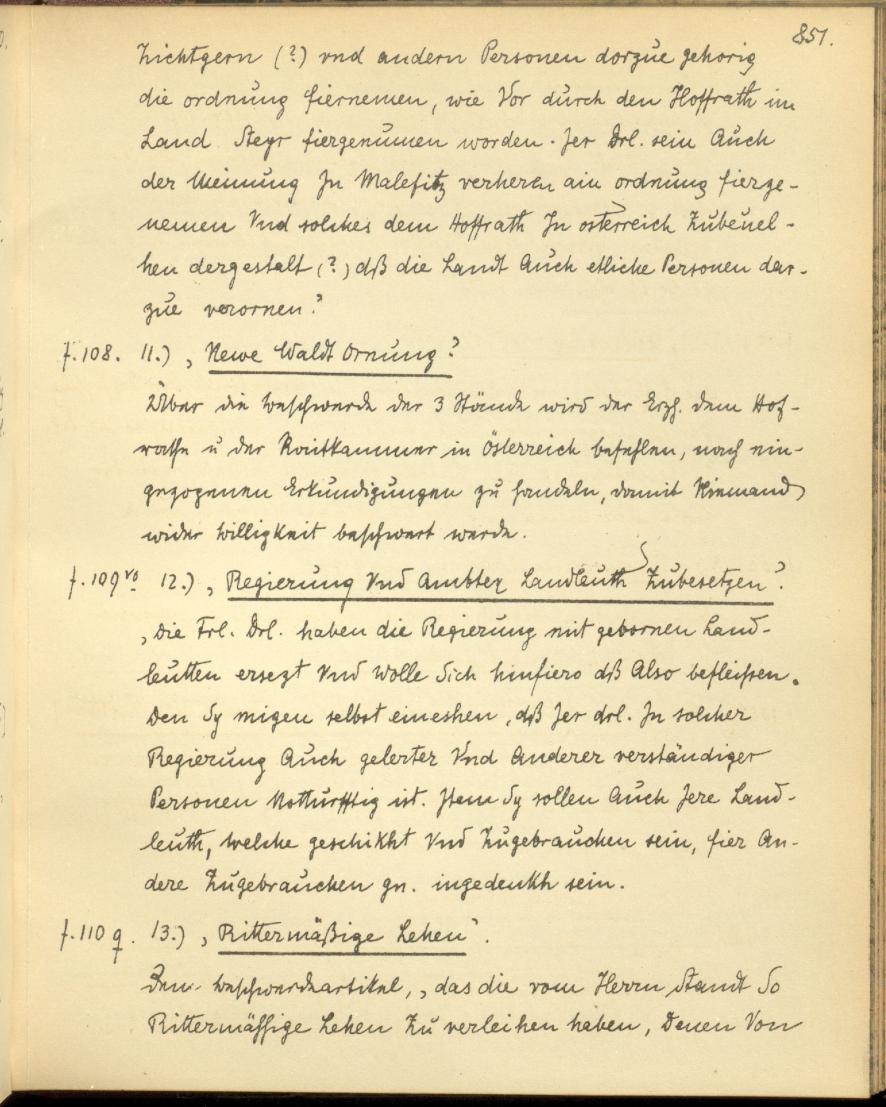 851.
Zichtgern (?) vnd andern Personen dorzue gehorig
die ordnung fiernemen, wie Vor durch den Hoffrath im
Land Steyr fiergenumen worden. Jer Drl. sein Auch
der Meinung Jn Malefitz verheren ain ordnung fierze-
nemen Vnd solches dem Hoffrath Jn osterreich Zubeuel-
hen dergestalt (?) dß die Landt Auch etliche Personen dar-
zue verornen."
f. 108. 11.) „Newe Waldt Ornung"
Über die Beschwerde der 3 Stände wird der Erzh. dem Hof-
rathe u der Raitkammer in Österreich befehlen, nach ein-
gezogenen Erkundigungen zu handeln, damit Niemand
wider Billigkeit beschwert werde.
f. 109vo 12.) „Regierung Vnd Ambter Landleuth Zubesetzen".
„Die Frl. Drl. haben die Regierung mit gebornen Land-
leutten ersezt Vnd Wolle Sich hinfiero dß Also befleissen.
Den Sy migen selbst eineshen, dß Jer drl. Jn solcher
Regierung Auch gelerter Vnd Anderer verständiger
Personen Notturfftig ist. Jtem Sy sollen Auch Jere Land-
leuth, welche geschikht Vnd Zugebrauchen sein, fier An-
dere Zugebrauchen gn. ingedenkh sein.
f. 110 q. 13.) „Rittermäßige Lehen".
Den Beschwerdeartikel, „das die vom Herrn Standt So
Rittermässige Lehen Zu verleihen haben, Denen Von